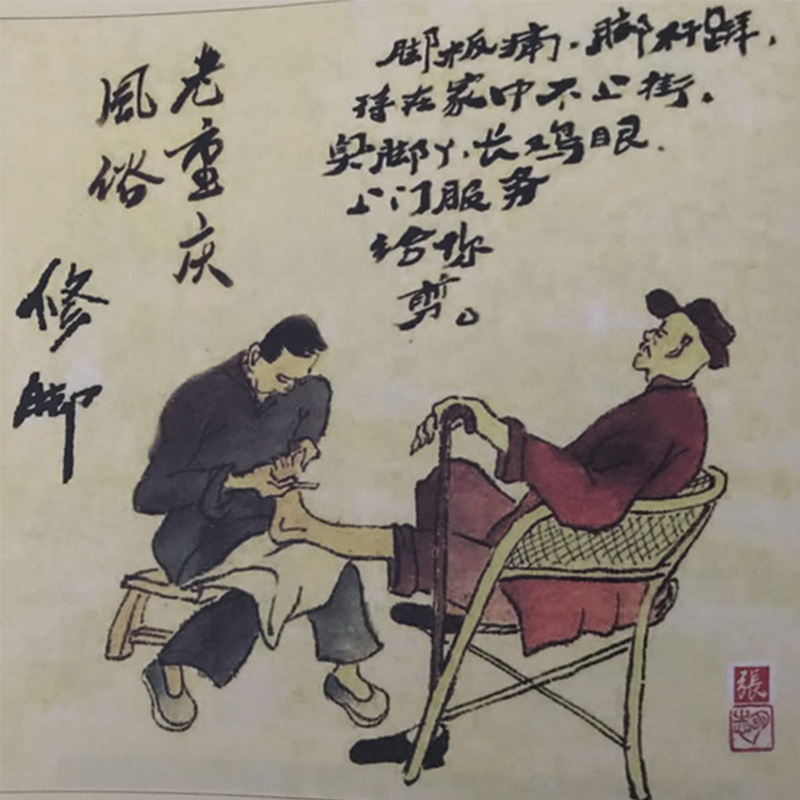 老重庆
風俗
修脚
脚板痛.脚杆,
待在家中不上街.
臭脚丫.长鸡眼.
上门服务
给你
剪。
張